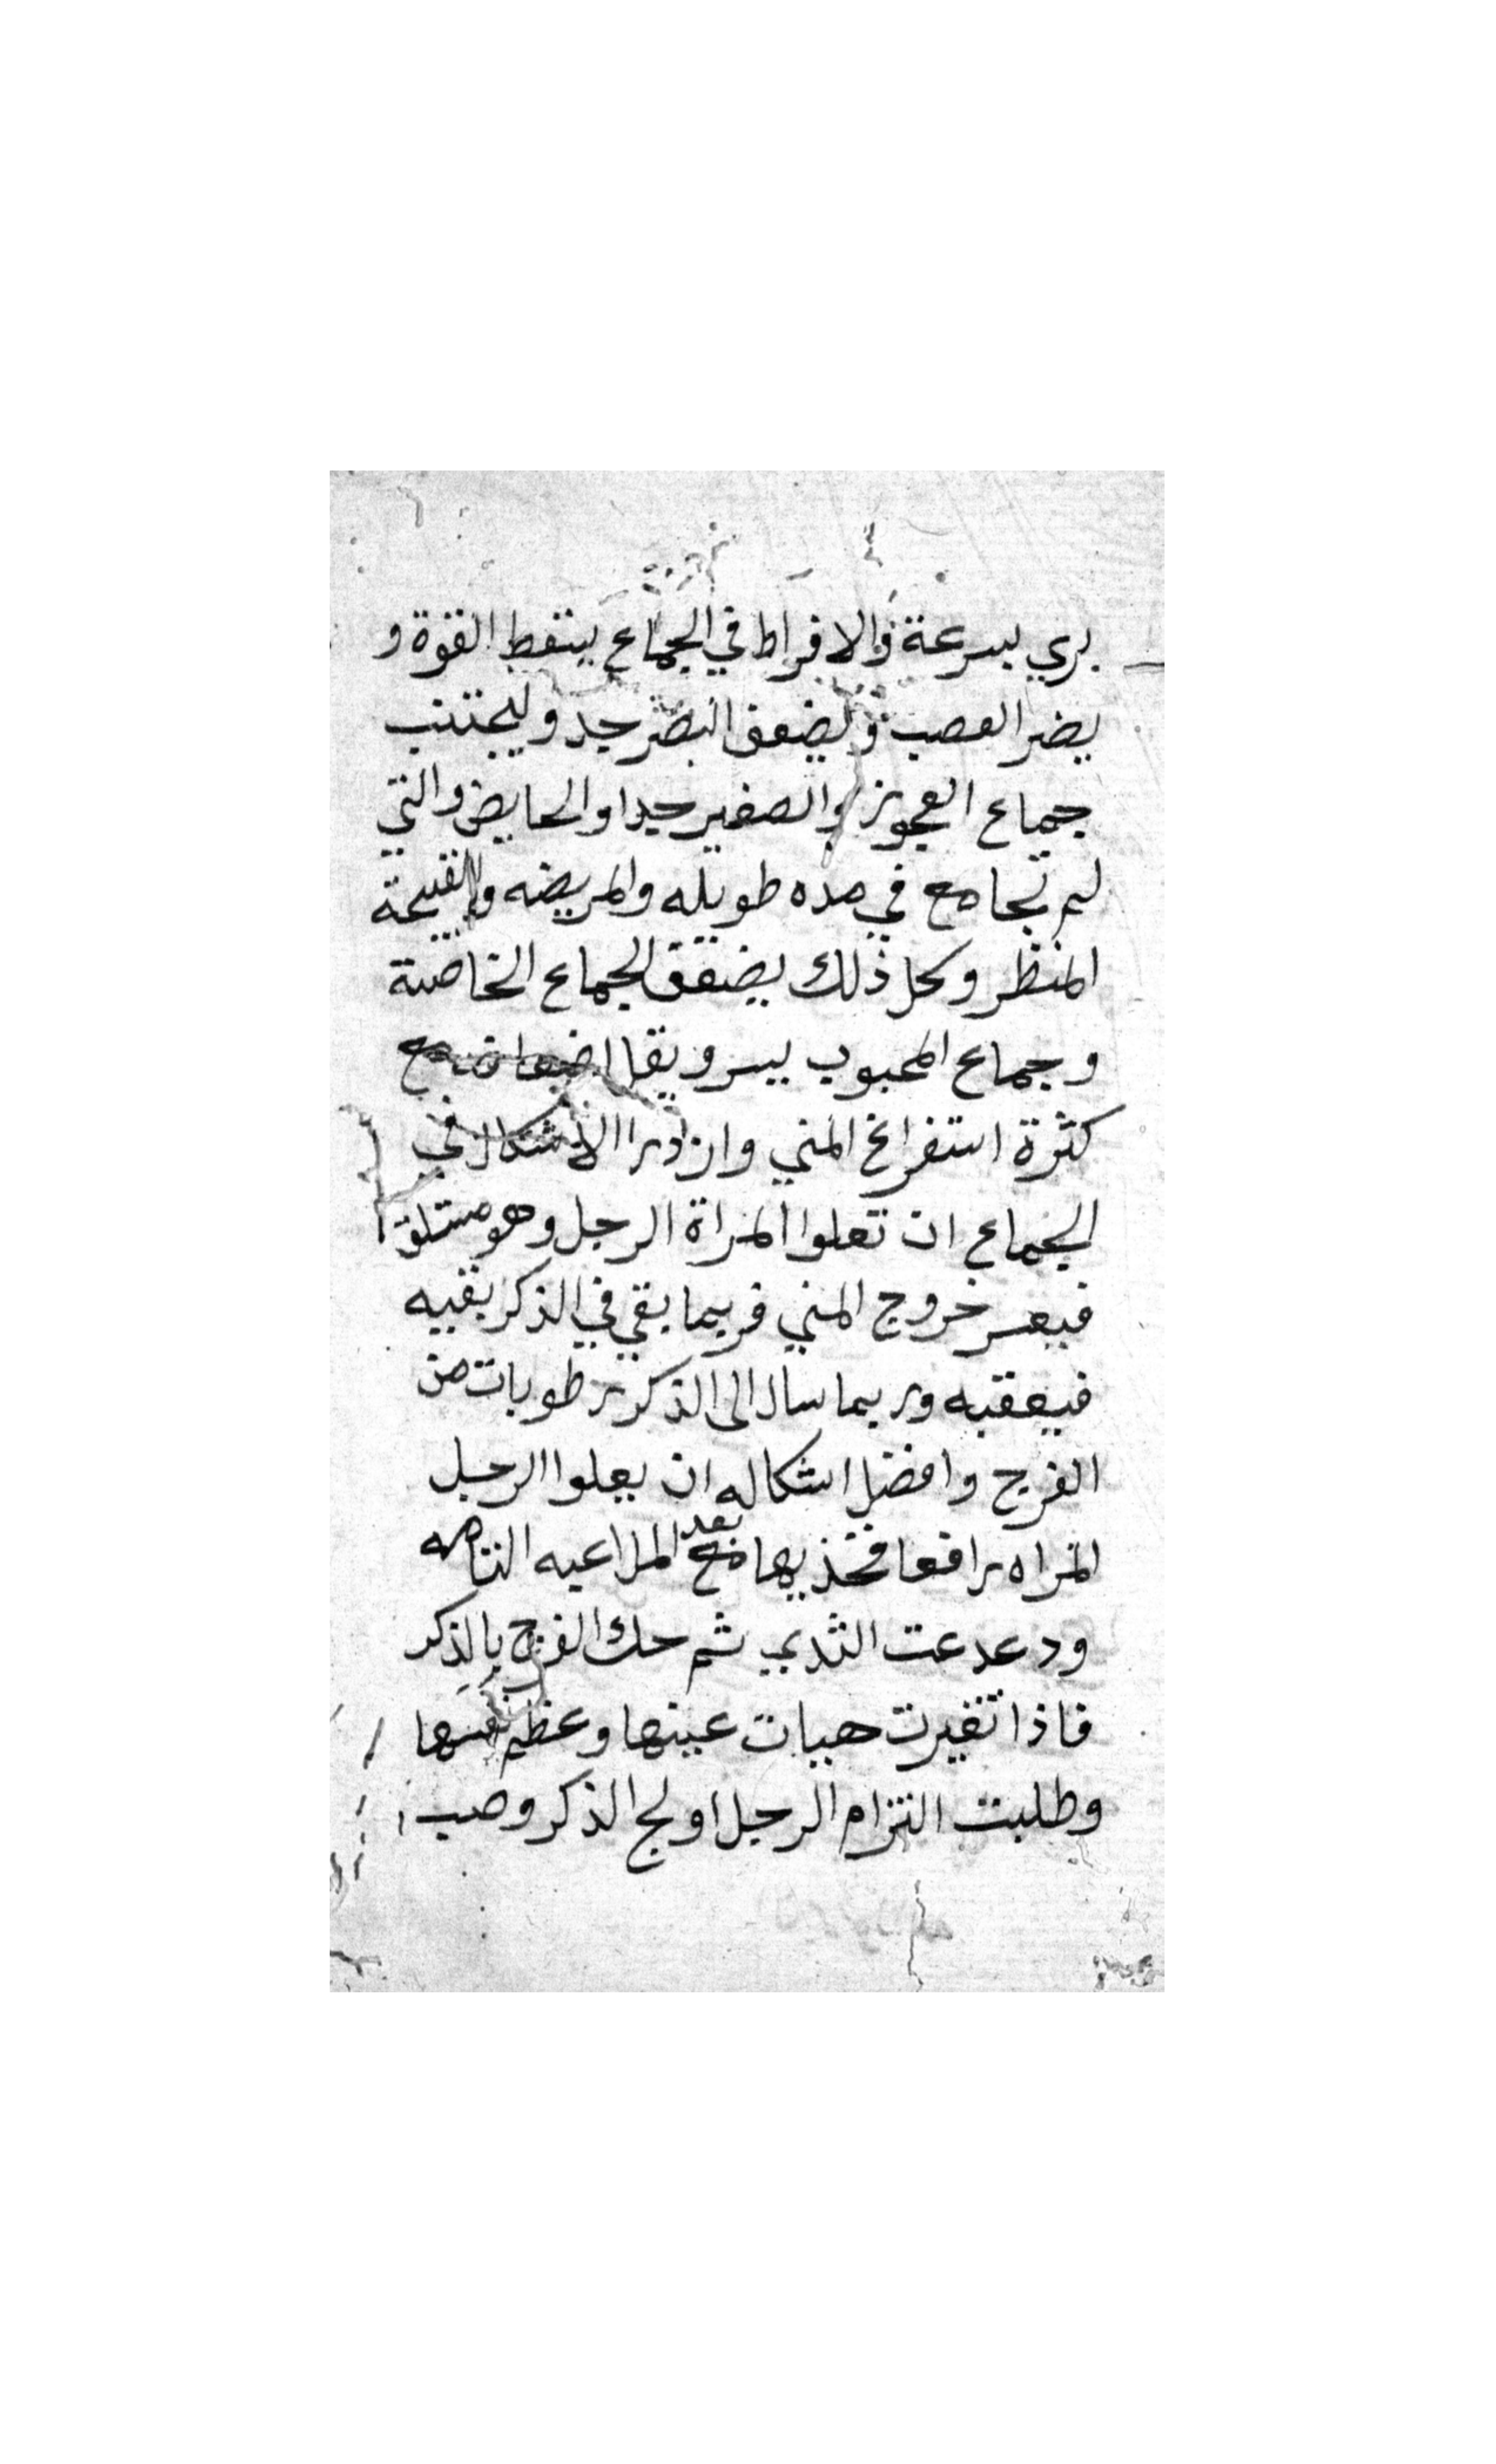 بري بسرعة والافراط في الجماع يسقط القوة و
يضر العصب ويضعف البصر جد وليجتنب
جماع العجوز والصغير جدا والحايض والتي
لم تجامع في مده طويله والمريضه والقبيحة
المنظر وكل ذلك يضعف الجماع الخاصية
وجماع المحبوب يسر ويقل اضعافه مع
كثرة استفراغ المني واردا الاشكال في
الجماع ان تعلوا المراة الرجل وهو مستلق
فيعسر خروج المني فربما بقي في الذكر بقيه
فيعقبه وربما سال الى الذكر رطوبات من
الفرج وافضل اشكاله ان يعلوا الرجل
المراه رافعا فخذيها بعد الملاعبه التامه
ودعدعت الثدي ثم حك الفرج بالذكر
فاذا تغيرت هيات عينها وعظم نفسها
وطلبت التزام الرجل اولج الذكر وصب